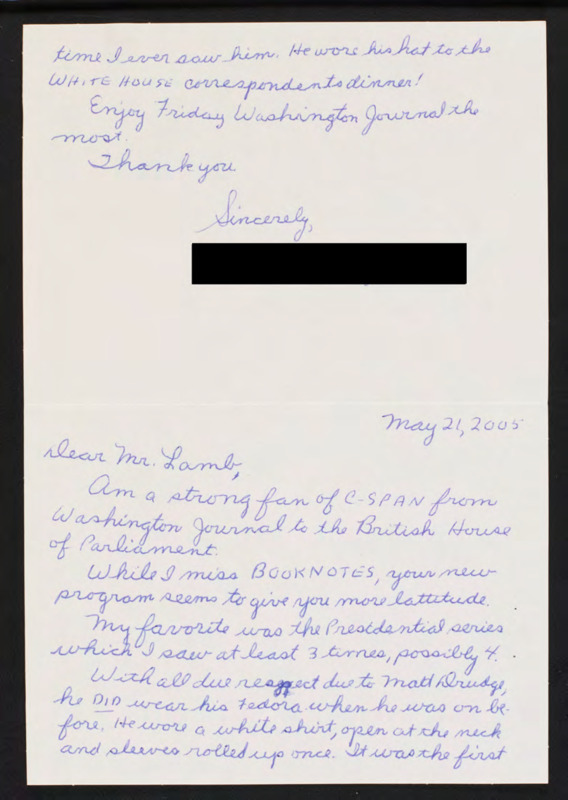 May 21, 2005
Dear Mr. Lamb,
Am a strong fan of C-SPAN from
Washington Journal to the British House
of Parliament.
While I miss BOOKNOTES, your new
program seems to give you more lattitude.
My favorite was the Presidential series
which I saw at least 3 times, possibly 4.
With all due respect due to Matt Drudge,
he DID wear his Fedora when he was on be-
fore. He wore a white shirt, open at the neck
and sleeves rolled up once. It was the first
time I ever saw him. He wore his hat to the
WHITE HOUSE correspondents dinner!
Enjoy Friday Washington Journal the
most.
Thank you
Sincerely,